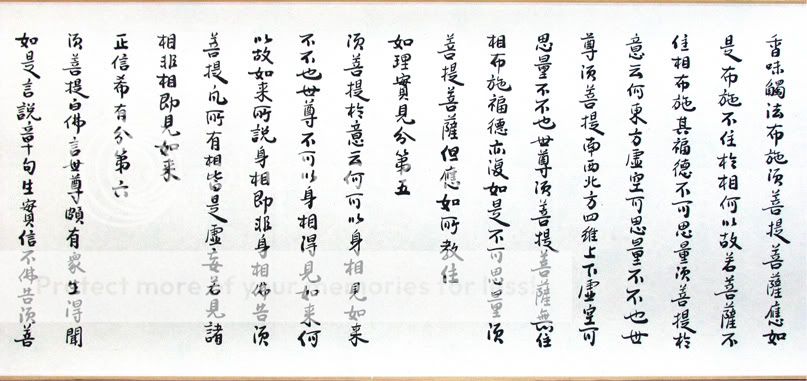 香味觸法布施須菩提菩薩應如
是布施不住於相何以故若菩薩不
住相布施其福德不可思量須菩提於
意云何東方虛空可思量不不也世
尊須菩提南西北方四維上下虛空可
思量不不也世尊須菩提菩薩無住
相布施福德亦復如是不可思量須
菩提菩薩但應如所教住
如理實見分第五
須菩提於意云何可以身相見如来
不不也世尊不可以身相得見如来何
以故如来所説身相即非身相佛告須
菩提凡所有相皆是虛妄若見諸
相非相即見如来
正信希有分第六
須菩提白佛言世尊頗有眾生得聞
如是言説章句生實信不佛告須菩
Protect more of your memories for less!